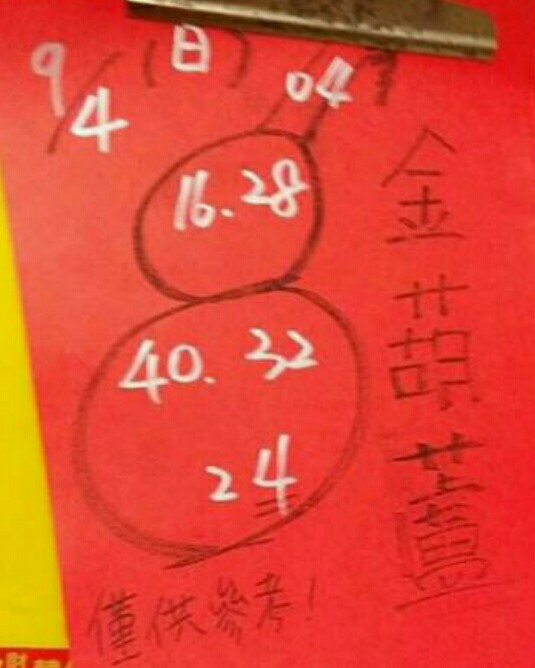 9/4 (日)
04
16.28
40.32
24
金葫蘆
僅供參考!